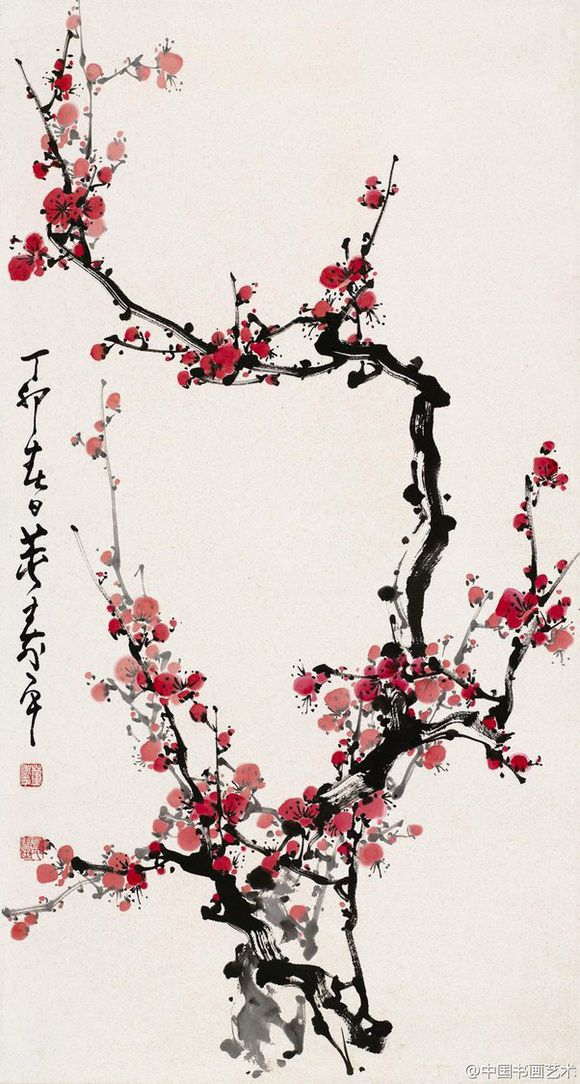 丁卯春日董寿平
@中国书画艺术